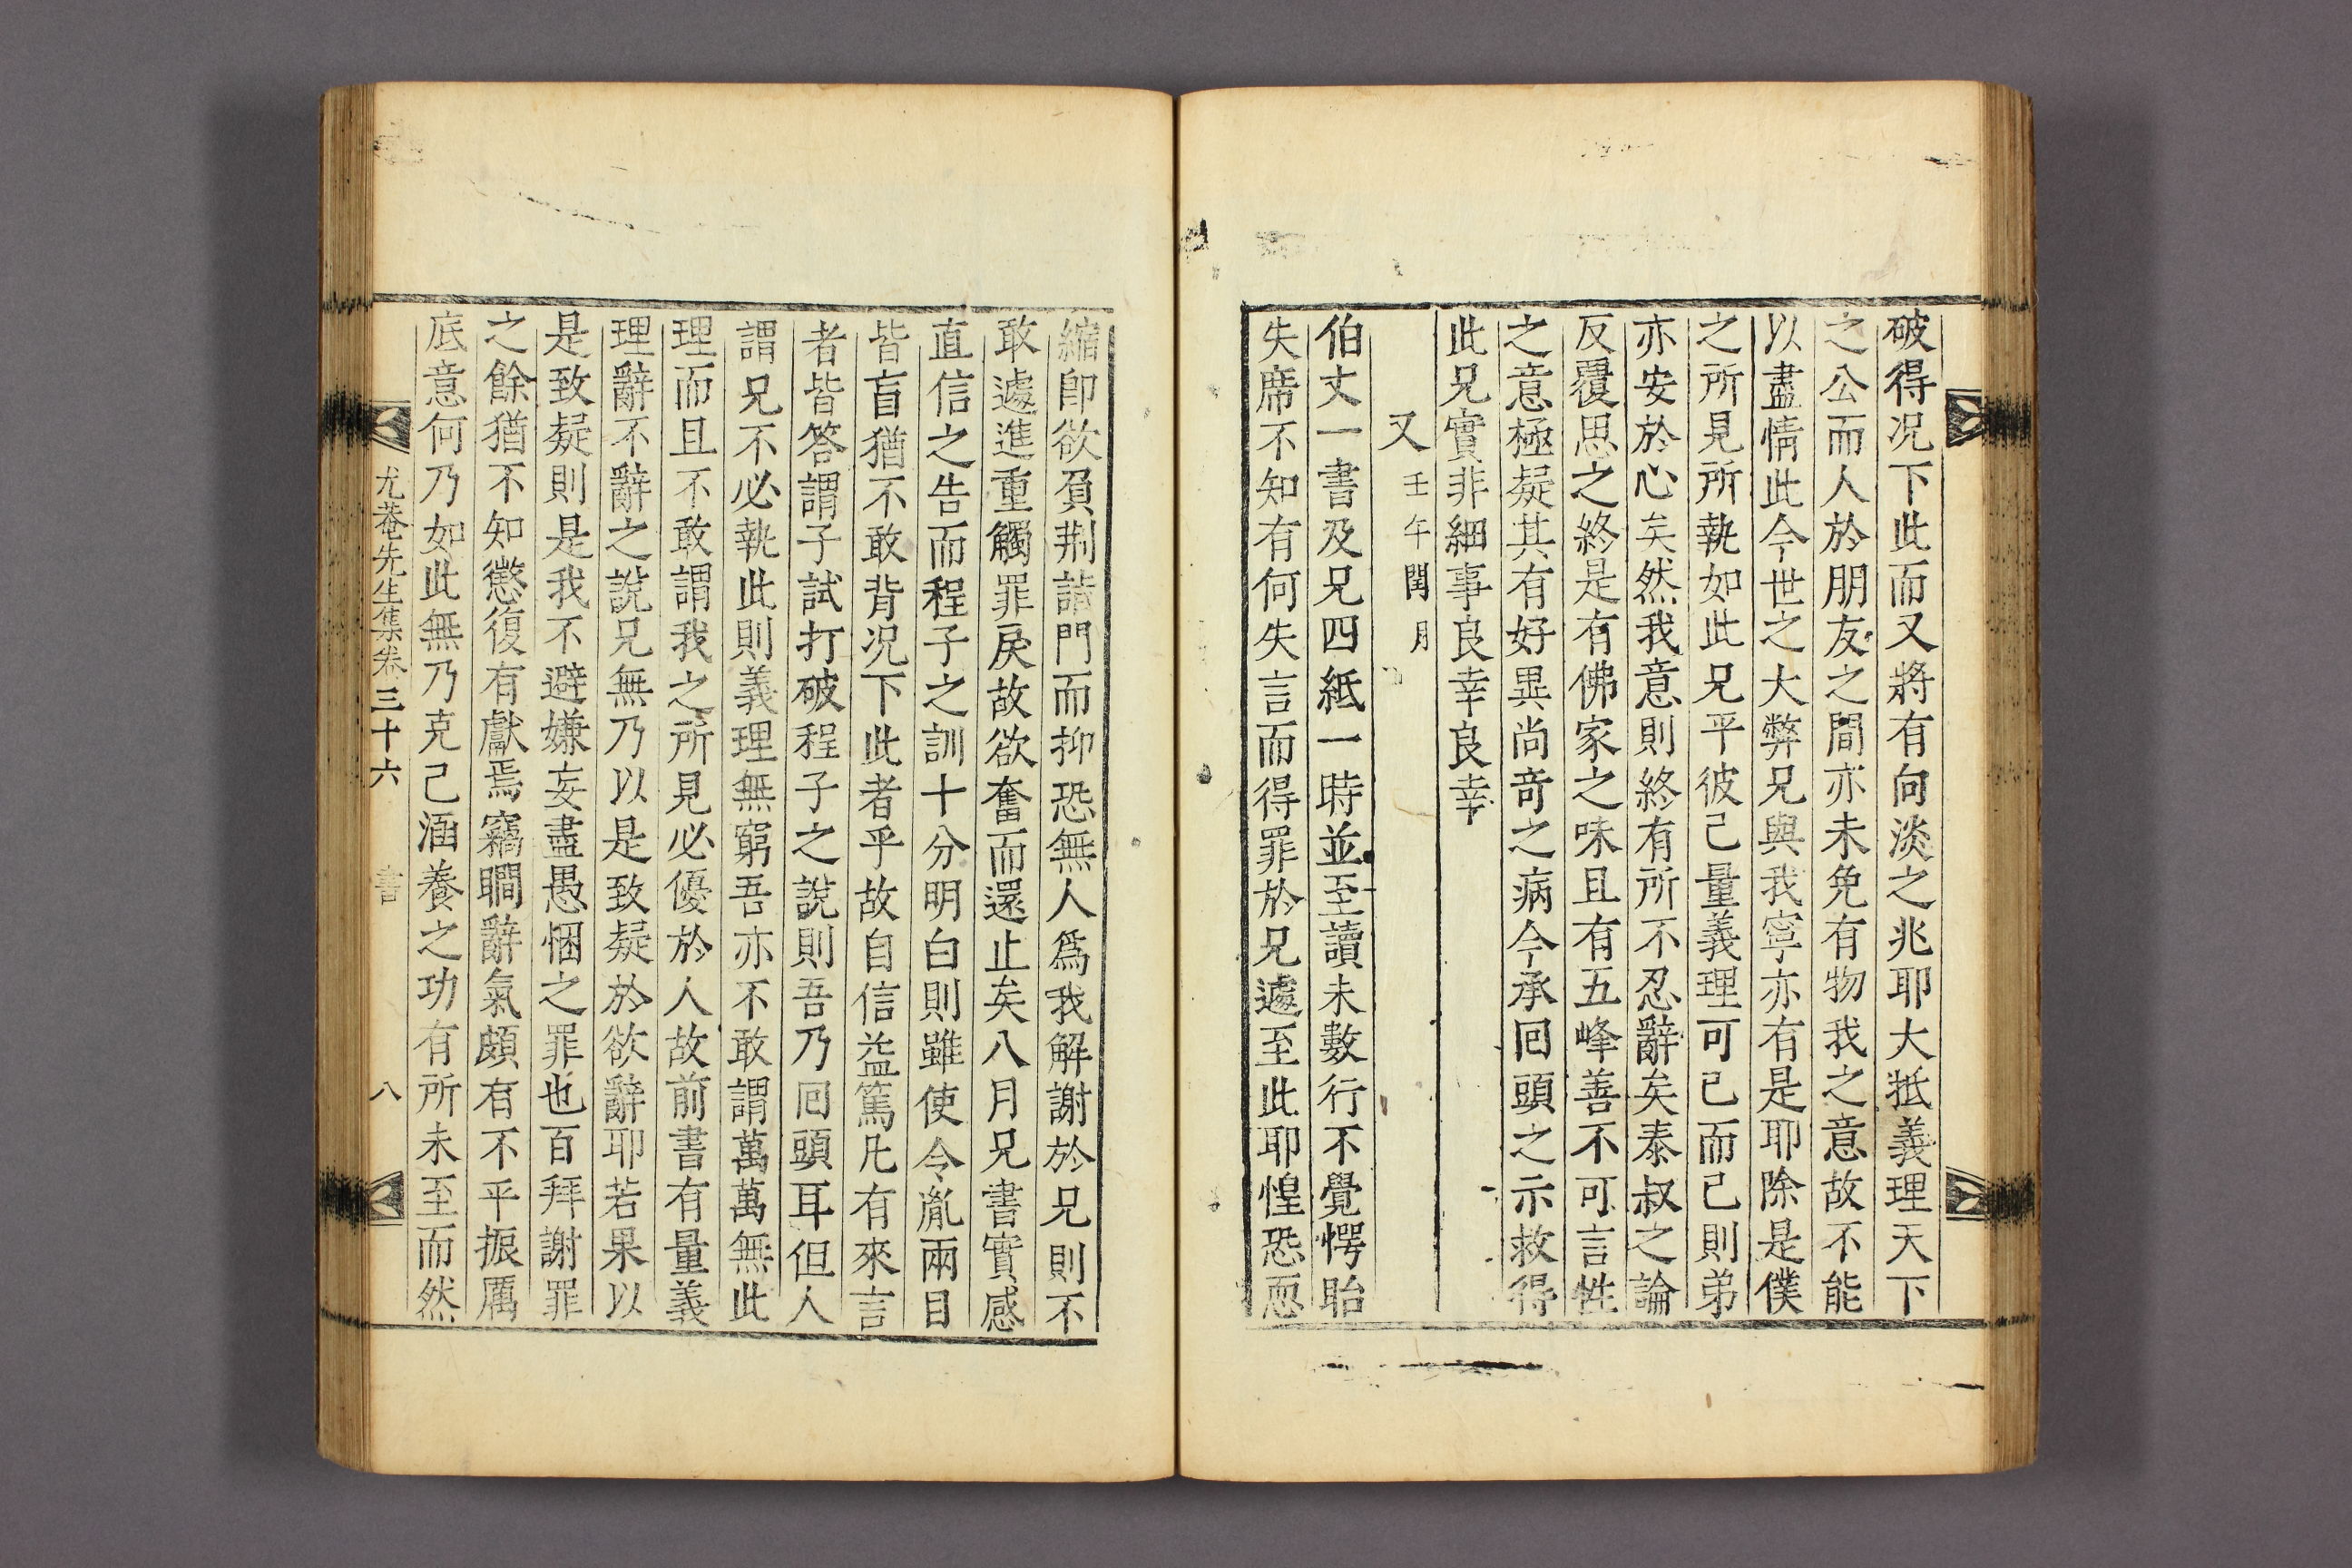 破得況下此而又將有向淡之兆耶大抵義理天下
之公而人於朋友之間亦未免有物我之意故不能
以盡情此今世之大弊兄與我寧亦有是耶除是僕
之所見所執如此兄平彼己量義理可已而已則弟
亦安於心矣然我意則終有所不忍辭矣泰叔之論
反覆思之終是有佛家之味且有五峰善不可言性
之意極疑其有好異尚奇之病今承回頭之示救得
此兄實非細事良幸良幸
又 壬午閏月
伯丈一書及兄四紙一時並至讀未數行不覺愕眙
失席不知有何失言而得罪於兄遽至此耶惶恐恧
縮卽欲負荆詣門而抑恐無人爲我解謝於兄則不
敢遽進重觸罪戾故欲奮而還止矣八月兄書實感
直信之告而程子之訓十分明白則雖使令胤兩目
皆盲猶不敢背況下此者乎故自信益篤凡有來言
者皆答謂子試打破程子之說則吾乃回頭耳但人
謂兄不必執此則義理無窮吾亦不敢謂萬萬無此
理而且不敢謂我之所見必優於人故前書有量義
理辭不辭之說兄無乃以是致疑於欲辭耶若果以
是致疑則是我不避嫌妄盡愚悃之罪也百拜謝罪
之餘猶不知懲復有獻焉竊瞷辭氣頗有不平振厲
底意何乃如此無乃克己涵養之功有所未至而然
尤菴先生集卷三十六 書 八